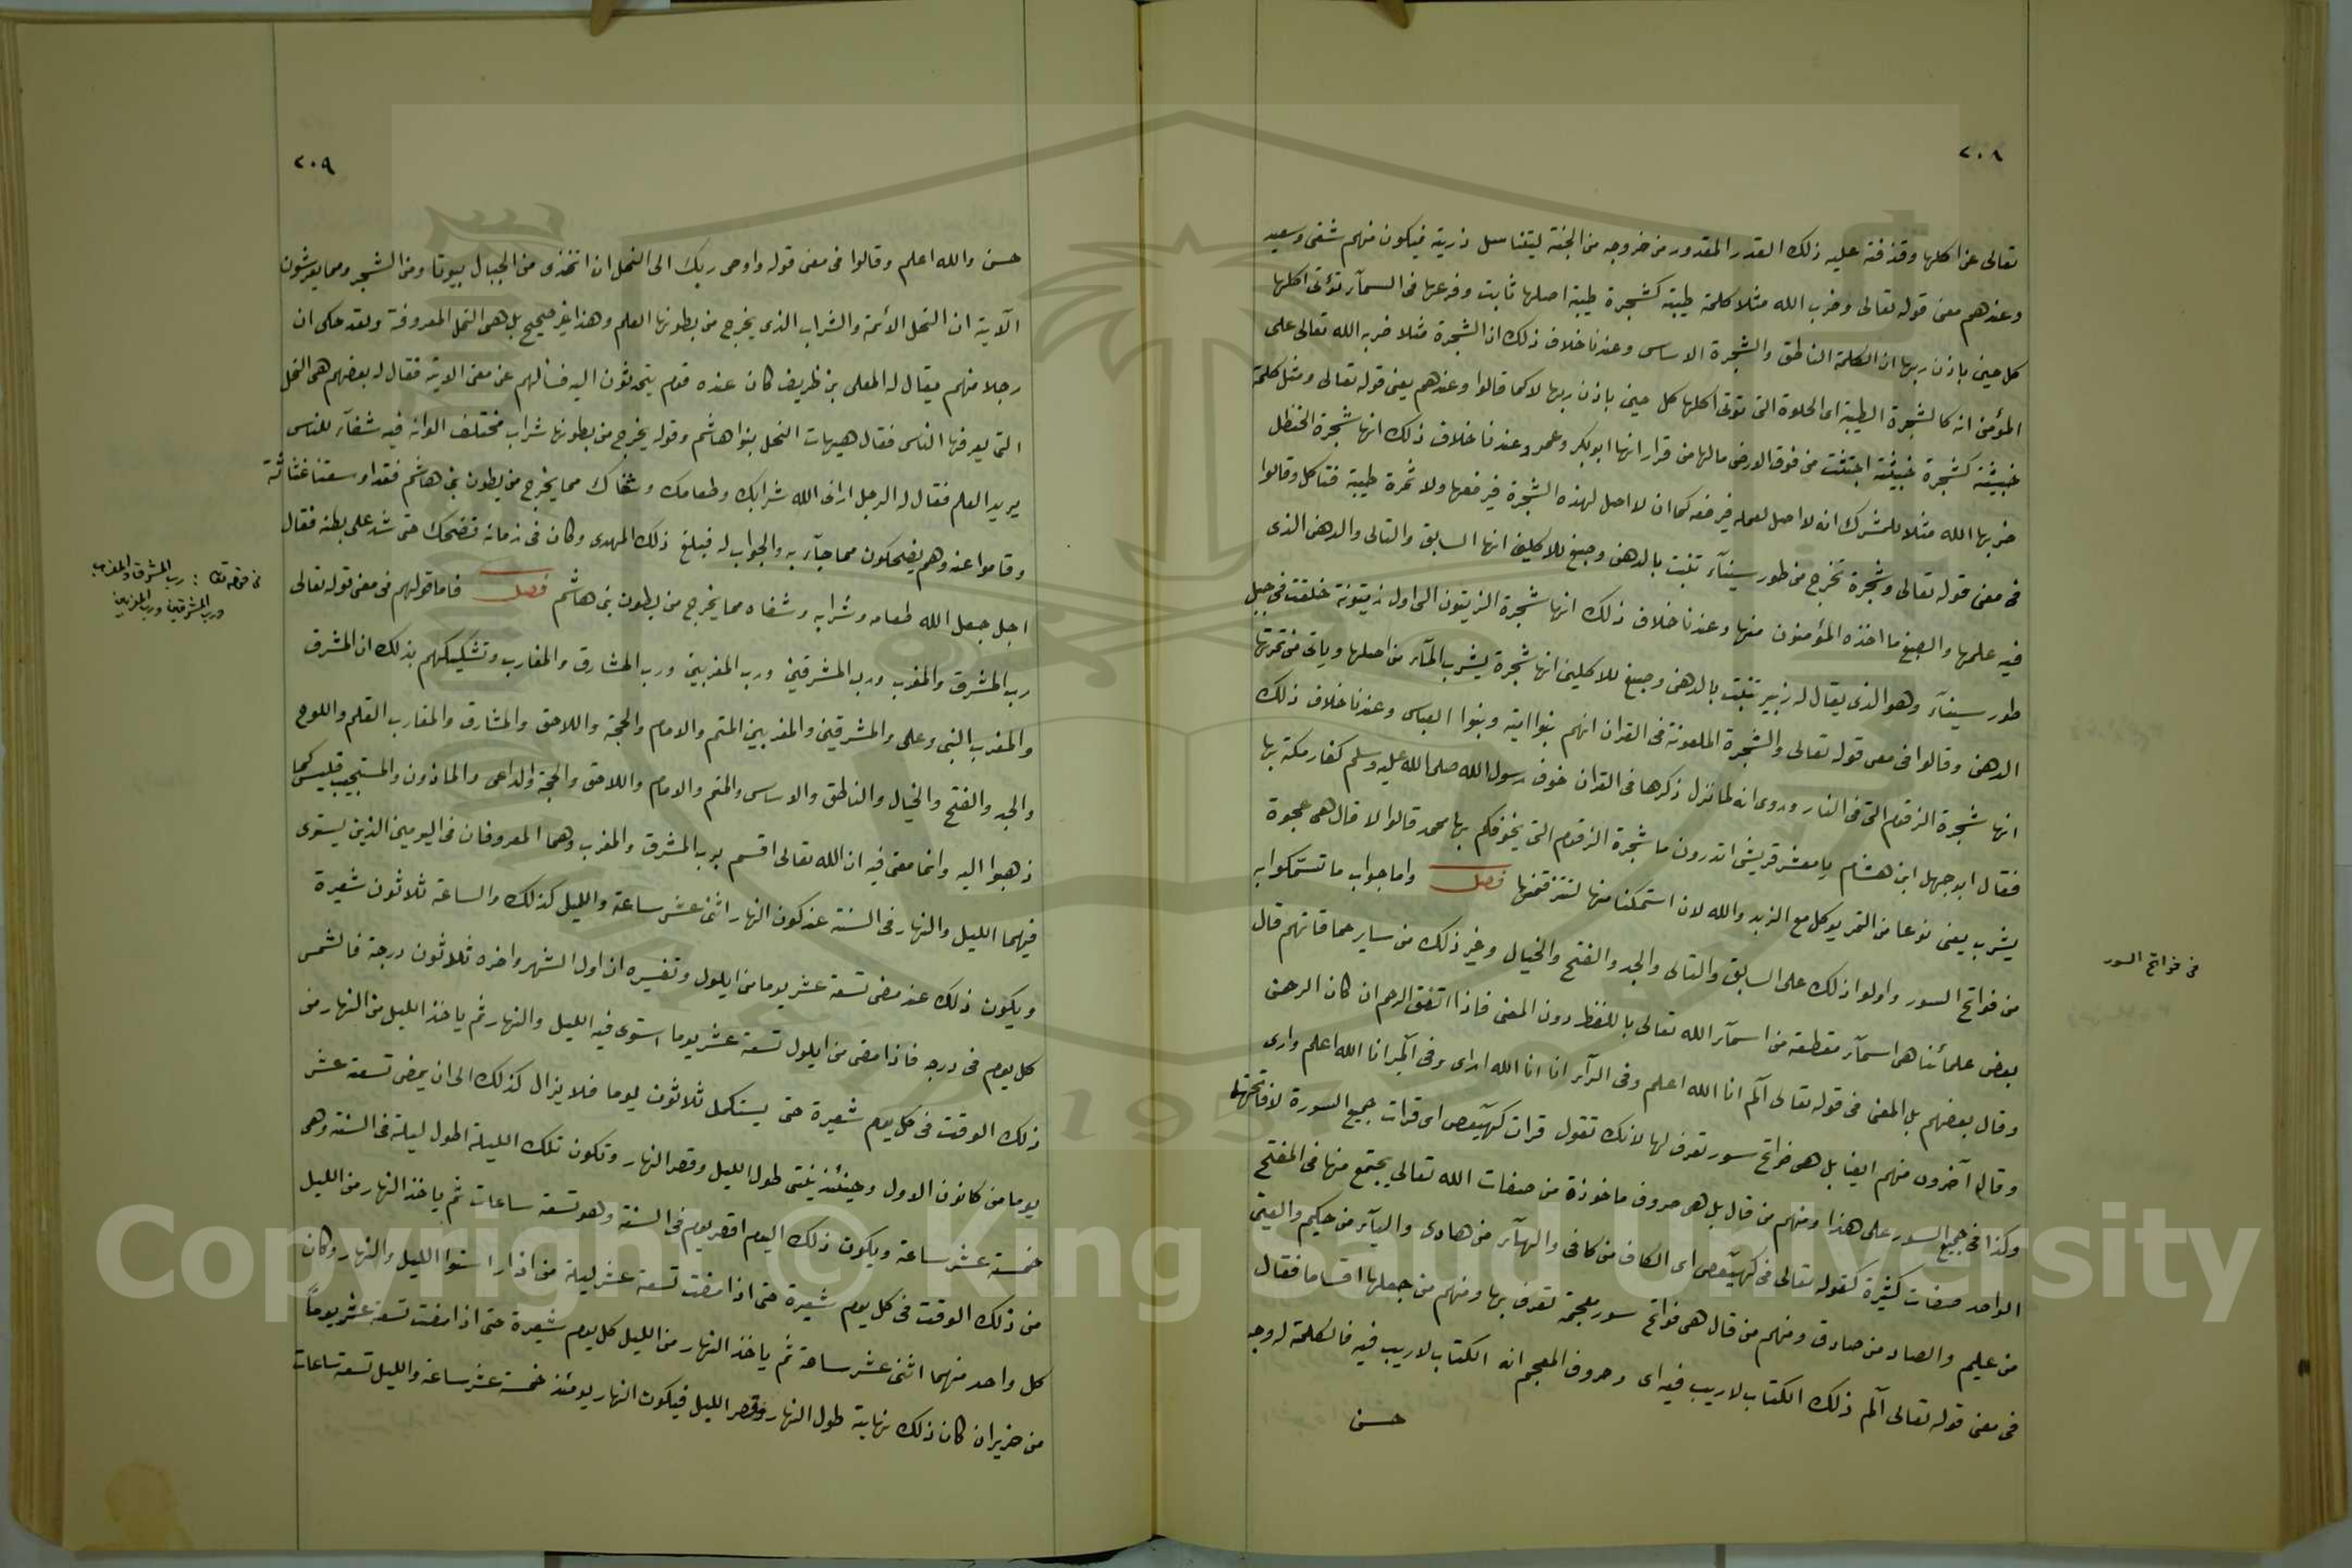 ٢٠٨
تعالى عن اكلها وقذفته عليه ذلك القدر المقدور من خروجه من الجنة ليتناسل ذريته فيكون منهم شقى وسعيد
وعندهم معنى قوله تعالى وضرب الله مثلا كلمة طيبة كشجرة طيبة اصلها ثابت وفرعها فى السمآء تؤتى اكلها
كل حين باذن ربها ان الكلمة الناطق والشجرة الاساس وعندنا خلاف ذلك ان الشجرة مثلا ضربه الله تعالى على
المؤمن انه كالشجرة الطيبة اى الحلوة التى تؤتى اكلها كل حين باذن ربها لا كما قالوا وعندهم يعنى قوله تعالى ومثل كلمة
خبيثة كشجرة خبيثة اجتثت من فوق الارض مالها من قرار انها ابوبكر وعمر وعندنا خلاف ذلك انها شجرة الحنظل
ضربها الله مثلا للمشرك انه لا اصل لعمله فيرفعه كما ان لا اصل لهذه الشجرة فيرفعها ولا ثمرة طيبة فتاكل وقالوا
فى معنى قوله تعالى وشجرة تخرج من طور سينآء تنبت بالدهن وصبغ للاكلين انها السابق والتالى والدهن الذى
فيه علمها والصبغ ما اخذه المؤمنون منها وعندنا خلاف ذلك انها شجرة الزيتون التى اول زيتونة خلقت فى جبل
طور سينآء وهو الذى يقال له زبير تنبت بالدهن وصبغ للاكلين انها شجرة يشرب المآء من اصلها وياتى من ثمرتها
الدهن وقالوا فى معنى قوله تعالى والشجرة الملعونة فى القران انهم بنوا امية وبنوا العباس وعندنا خلاف ذلك
انها شجرة الزقوم التى فى النار وروى انه لما نزل ذكرها فى القران خوف رسول الله صلى الله عليه وسلم كفار مكة بها
فقال ابوجهل ابن هشام يا معشر قريش اتدرون ما شجرة الزقوم التى يخوفكم بها محمد قالوا لا قال هى عجوة
يثرب يعنى نوعا من التمر يوكل مع الزبد والله لان استمكنا منها لنتزقمنها فصل واما جواب ما تستمكوا به
من فواتح السور واولوا ذلك على السابق والتالى والجد والفتح والخيال وغير ذلك من ساير حماقاتهم قال
بعض علمائنا هى اسمآء مقطعة من اسمآء الله تعالى باللفظ دون المعنى فاذا اتفق الرحم ان كان الرحمن
وقال بعضهم بل المعنى فى قوله تعالى آلم انا الله اعلم وفى الرآء انا انا الله ارى وفى آلمر انا الله اعلم وارى
وقال آخرون منهم ايضا بل هى فواتح سور تعرف لها لانك تقول قرات كهيعص اى قرات جميع السورة لا فاتحتها
وكذا فى جميع السور على هذا ومنهم من قال بل هى حروف ماخوذة من صفات الله تعالى يجتمع منها فى المفتح
الواحد صفات كثيرة كقوله تعالى فى كهيعص اى الكاف من كافى والهآء من هادى واليآء من حكيم والعين
من عليم والصاد من صادق ومنهم من قال هى فواتح سور معجمة تعرف بها ومنهم من جعلها اقساما فقال
فى معنى قوله تعالى آلم ذلك الكتاب لا ريب فيه اى وحروف المعجم انه الكتاب لا ريب فيه فالكلمة له وجه
حسن
فى فواتح السور
٢٠٩
حسن والله اعلم وقالوا فى معنى قوله واوحى ربك الى النحل ان اتخذى من الجبال بيوتا ومن الشجر ومما يعرشون
الآية ان النحل الائمة والشراب الذى يخرج من بطونها العلم وهذا غير صحيح بل هى النحل المعروفة ولقد حكى ان
رجلا منهم يقال له المعلى بن ظريف كان عنده قوم يتحدثون اليه فسالهم عن معنى الاية فقال له بعضهم هى النحل
التى يعرفها الناس فقال هيهات النحل بنوا هاشم وقوله يخرج من بطونها شراب مختلف الوانه فيه شفآء للناس
يريد العلم فقال له الرجل ارانى الله شرابك وطعامك وشفاك مما يخرج من بطون بنى هاشم فقد اوسعتنا غثاثة
وقاموا عنه وهم يضحكون مما جآء به والجواب له فبلغ ذلك المهدى وكان فى زمانه فضحك حتى شد على بطنه فقال
اجل جعل الله طعامه وشرابه وشفاه مما يخرج من بطون بنى هاشم فصل فاما قولهم فى معنى قوله تعالى
رب المشرق والمغرب ورب المشرقين ورب المغربين ورب المشارق والمغارب وتشكيكهم بذلك ان المشرق
والمغرب النبى وعلى والمشرقين والمغربين المتم والامام والحجة واللاحق والمشارق والمغارب القلم واللوح
والجد والفتح والخيال والناطق والاساس والمتم والامام واللاحق والحجة والداعى والماذون والمستجيب فليس كما
ذهبوا اليه وانما معنى فيه ان الله تعالى اقسم برب المشرق والمغرب وهما المعروفان فى اليومين الذين يستوى
فيهما الليل والنهار فى السنة عند كون النهار اثنى عشر ساعة والليل كذلك والساعة ثلاثون شعيرة
ويكون ذلك عند مضى تسعة عشر يوما من ايلول وتفسيره ان اول الشهر واخره ثلاثون درجة فالشمس
كل يوم فى درجه فاذا مضى من ايلول تسعة عشر يوما استوى فيه الليل والنهار ثم ياخذ الليل من النهار من
ذلك الوقت فى كل يوم شعيرة حتى يستكمل ثلاثون يوما فلا يزال كذلك الى ان يمضى تسعة عشر
يوما من كانون الاول وحينئذ ينتهى طول الليل وقصر النهار وتكون تلك الليلة اطول ليلة فى السنة وهى
خمسة عشر ساعة ويكون ذلك اليوم اقصر يوم فى السنة وهو تسعة ساعات ثم ياخذ النهار من الليل
من ذلك الوقت فى كل يوم شعيرة حتى اذا مضت تسعة عشر ليلة من اذار استوا الليل والنهار وكان
كل واحد منهما اثنى عشر ساعة ثم ياخذ النهار من الليل كل يوم شعيرة حتى اذا مضت تسعة عشر يوماً
من حزيران كان ذلك نهاية طول النهار وقصر الليل فيكون النهار يومئذ خمسة عشر ساعة والليل تسعة ساعات
رب المشرق والمغرب
ورب المشرقين ورب المغربين
Copyright © King Saud University
1957